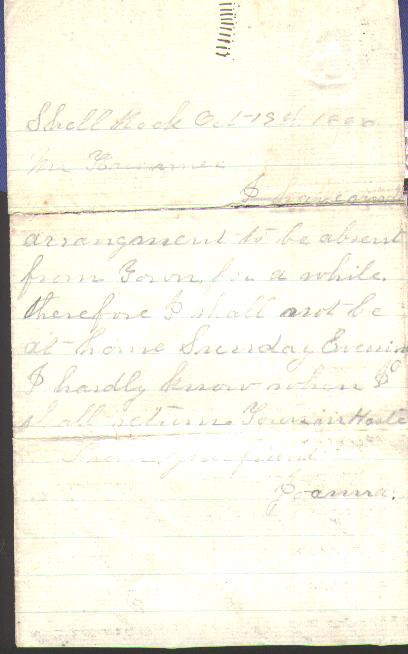 Shell Rock Oct-19th 1880
Mr
I have made
arrangment to be absent
from Town for a while.
therefore I shall not be
at home Sunday Evening
I hardly know when I
shall return Yours in Haste
From your friend
Joanna.